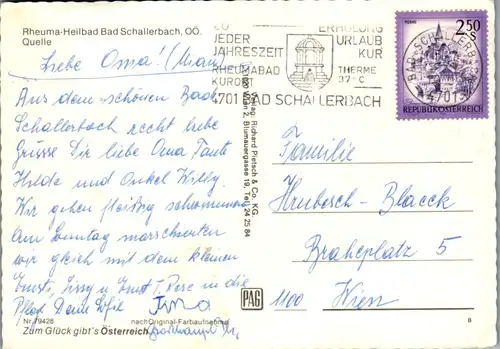 Rheuma-Heilbad Bad Schallerbach, OÖ.
Quelle
ZU
JEDER
JAHRESZEIT
RHEUMABAD
KURORT
ERHOLUNG
URLAUB
KUR
THERME
37°C
4701 BAD SCHALLERBACH
STEYR
2.50
S
REPUBLIK ÖSTERREICH
4701
Liebe Oma!
Aus dem schönen Bad
Schallerbach recht liebe
Grüsse Dir liebe Oma Tante
Hilde und Onkel Willy.
Wir gehen fleißig schwimmen
Am Sonntag marschierten
wir gleich mit dem kleinen
in die
Verlag: Richard Pietsch & Co. KG.
Wien 2, Blumauergasse 19, Tel. 24 25 84
Familie
Hrubesch - Blaeck
Braheplatz 5
1100 Wien
PAG
Nr. 79428
nach Original-Farbaufnahme
Zum Glück gibt's Österreich
8